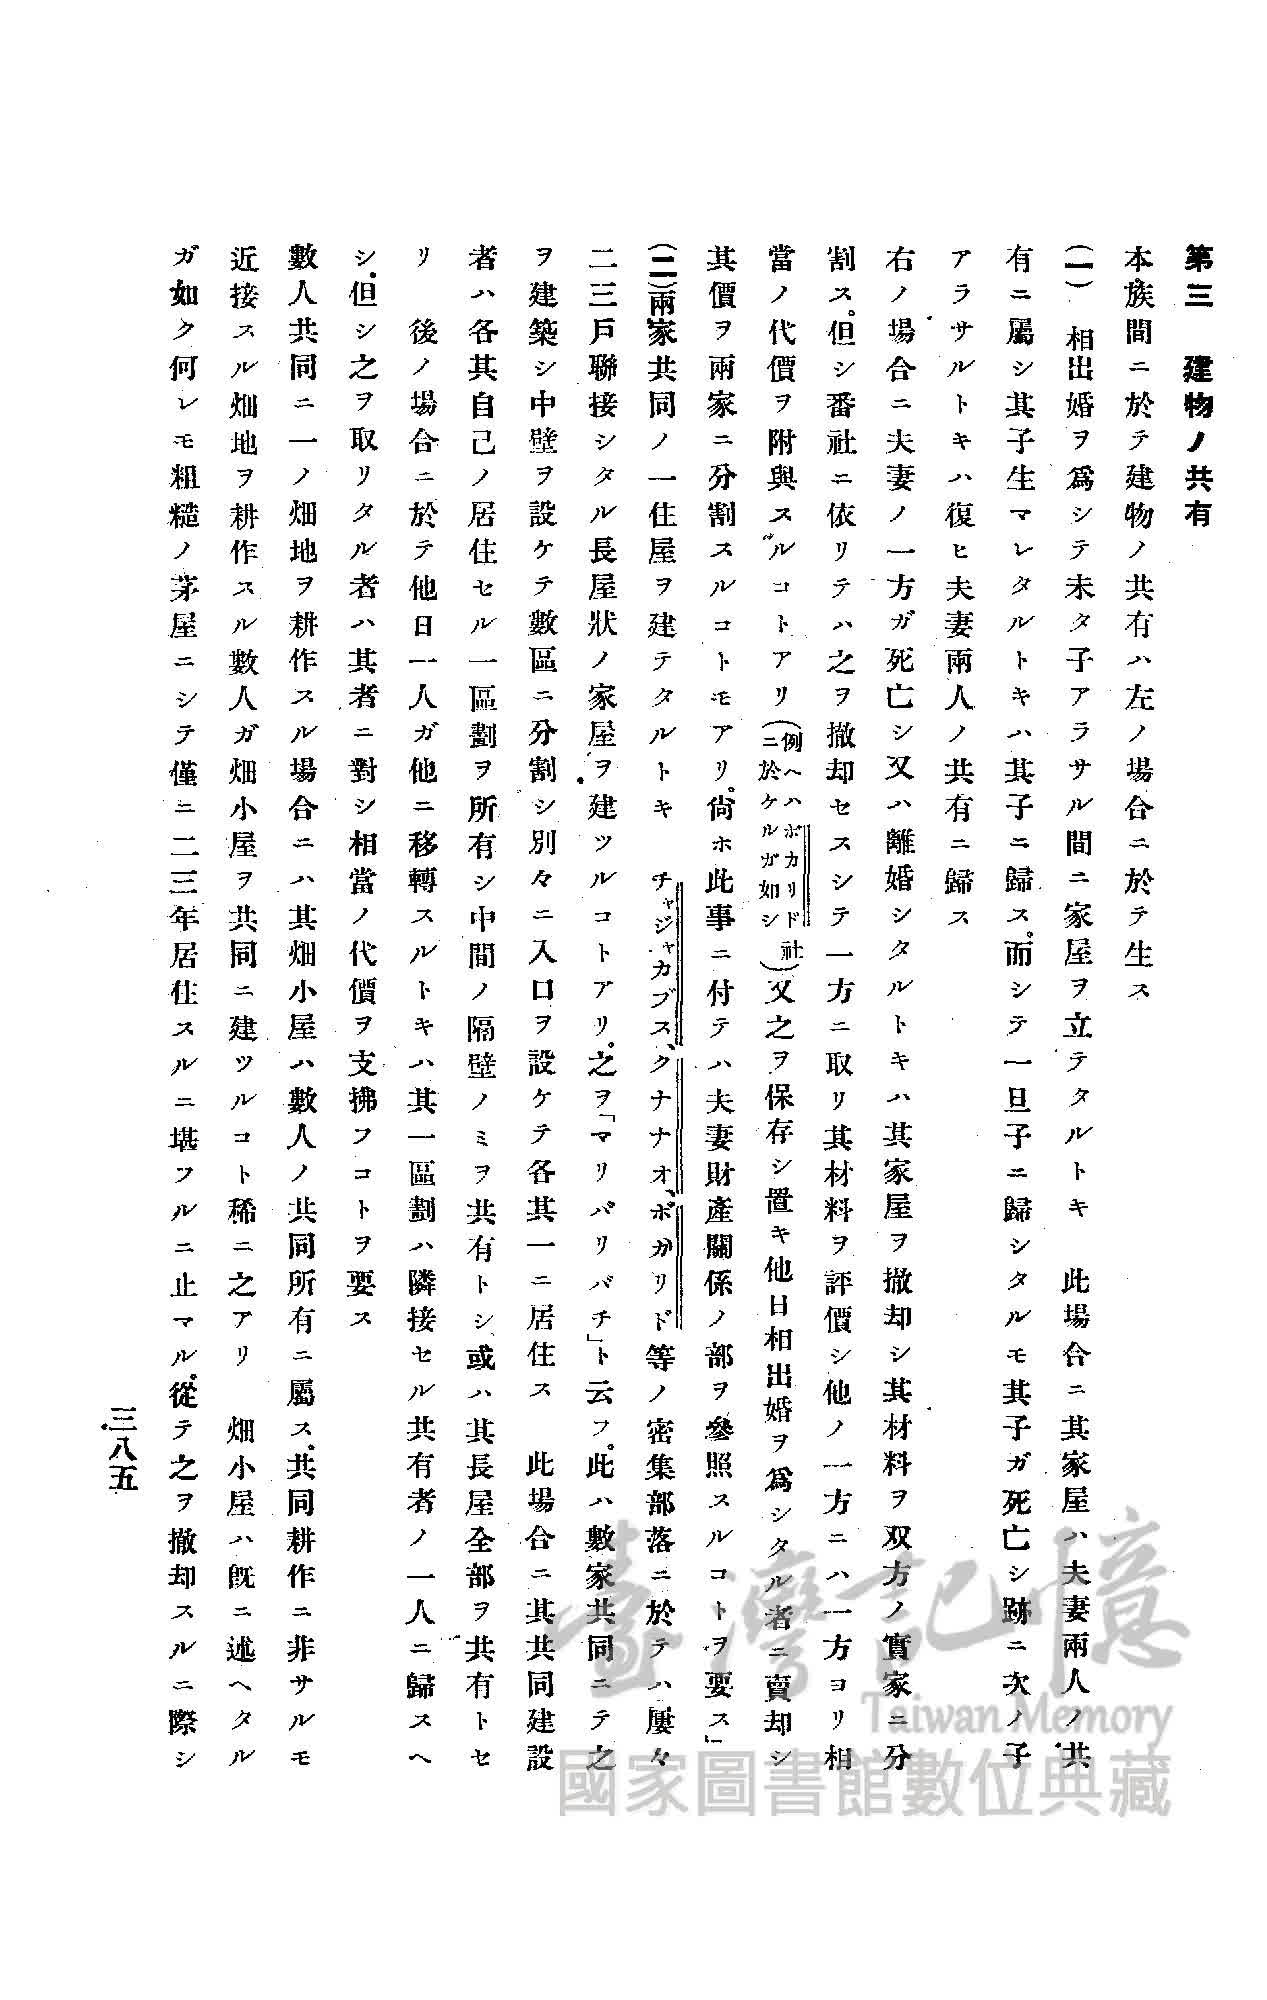 第三　建物ノ共有
本族間ニ於テ建物ノ共有ハ左ノ場合ニ於テ生ス
(一)　相出婚ヲ爲シテ未タ子アラサル間ニ家屋ヲ立テタルトキ　此場合ニ其家屋ハ夫妻兩人ノ共
有ニ屬シ其子生マレタルトキハ其子ニ歸ス。而シテ一旦子ニ歸シタルモ其子ガ死亡シ跡ニ次ノ子
アラサルトキハ復ヒ夫妻兩人ノ共有ニ歸ス
右ノ場合ニ夫妻ノ一方ガ死亡シ又ハ離婚シタルトキハ其家屋ヲ撤却シ其材料ヲ双方ノ實家ニ分
割ス。但シ番社ニ依リテハ之ヲ撤却セスシテ一方ニ取リ其材料ヲ評價シ他ノ一方ニハ一方ヨリ相
當ノ代價ヲ附與スルコトアリ(例ヘハボカリド社ニ於ケルガ如シ)又之ヲ保存シ置キ他日相出婚ヲ爲シタル者ニ賣却シ
其價ヲ兩家ニ分割スルコトモアリ。尙ホ此事ニ付テハ夫妻財產關係ノ部ヲ參照スルコトヲ要ス」
(二)兩家共同ノ一住屋ヲ建テタルトキ　チャジャカブス、クナナオ、ボガリド等ノ密集部落ニ於テハ屢々
二三戸聯接シタル長屋狀ノ家屋ヲ建ツルコトアリ。之ヲ「マリバリバチ」ト云フ。此ハ數家共同ニテ之
ヲ建築シ中壁ヲ設ケテ數區ニ分割シ別々ニ入口ヲ設ケテ各其一ニ居住ス　此場合ニ其共同建設
者ハ各其自己ノ居住セル一區劃ヲ所有シ中間ノ隔壁ノミヲ共有トシ、或ハ其長屋全部ヲ共有トセ
リ　後ノ場合ニ於テ他日一人ガ他ニ移轉スルトキハ其一區劃ハ隣接セル共有者ノ一人ニ歸スヘ
シ、但シ之ヲ取リタル者ハ其者ニ對シ相當ノ代價ヲ支拂フコトヲ要ス
數人共同ニ一ノ畑地ヲ耕作スル場合ニハ其畑小屋ハ數人ノ共同所有ニ屬ス、共同耕作ニ非サルモ
近接スル畑地ヲ耕作スル數人ガ畑小屋ヲ共同ニ建ツルコト稀ニ之アリ　畑小屋ハ既ニ述ヘタル
ガ如ク何レモ粗糙ノ茅屋ニシテ僅ニ二三年居住スルニ堪フルニ止マル。從テ之ヲ撤却スルニ際シ
三八五
臺灣記憶
Taiwan Memory
國家圖書館數位典藏